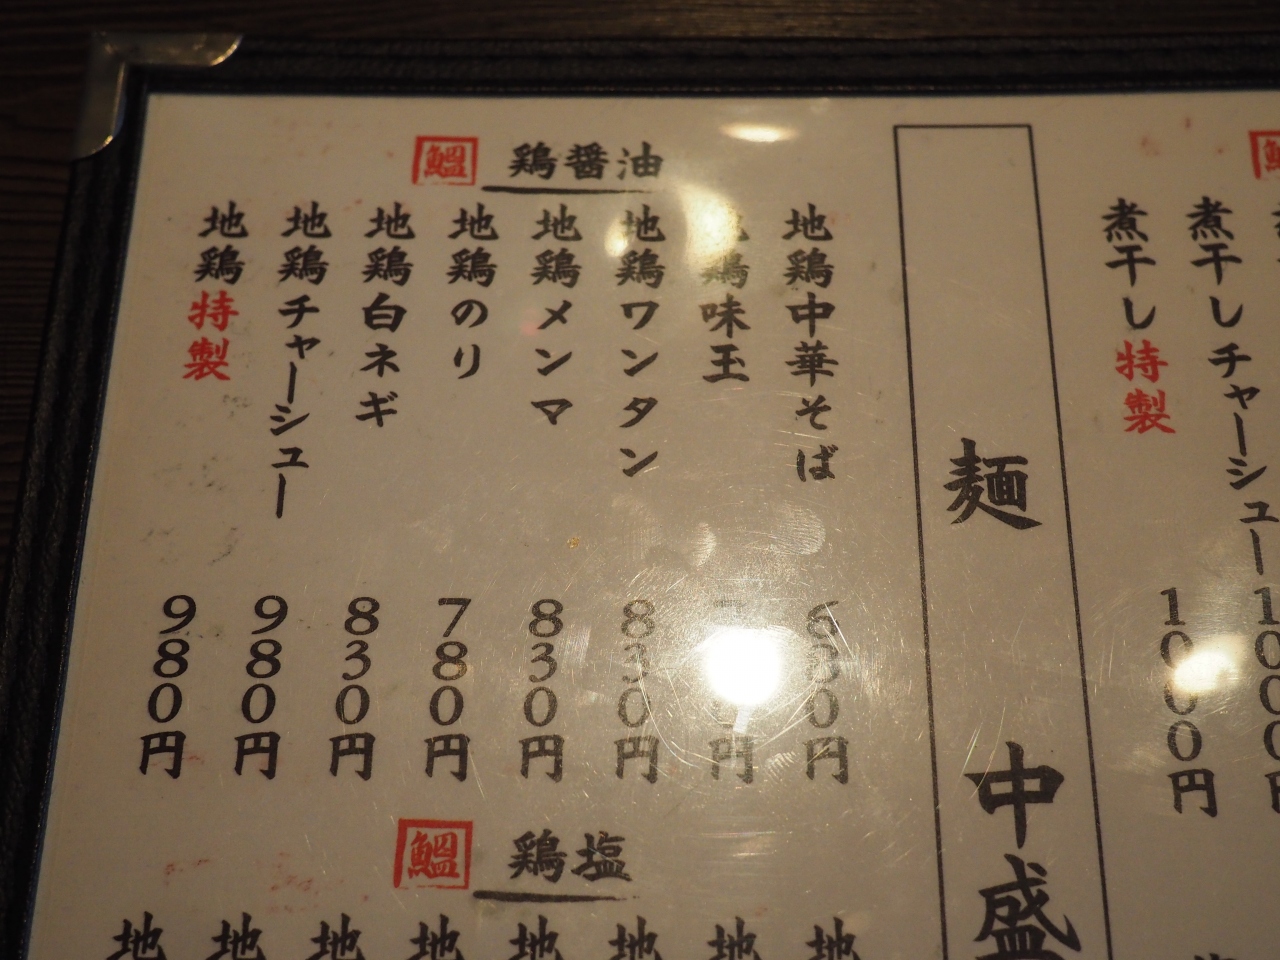 鰮
煮干し
煮干しチャーシュー
1000円
煮干し特製
1000円
麺 中盛
鰮 鶏醤油
地鶏中華そば
680円
地鶏味玉
円
地鶏ワンタン
830円
地鶏メンマ
830円
地鶏のり
780円
地鶏白ネギ
830円
地鶏チャーシュー
980円
地鶏特製
980円
鰮 鶏塩
地
地
地
地
地
地
地
地